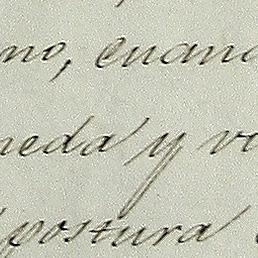 no, cuand
neda y ve
postura